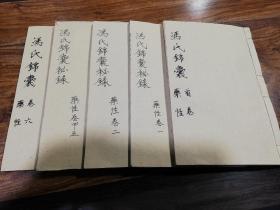 馮氏錦囊
首卷
藥性
馮氏錦囊秘錄
藥性卷一
馮氏錦囊秘錄
藥性卷二
馮氏錦囊秘錄
馮氏錦囊
卷六
藥性